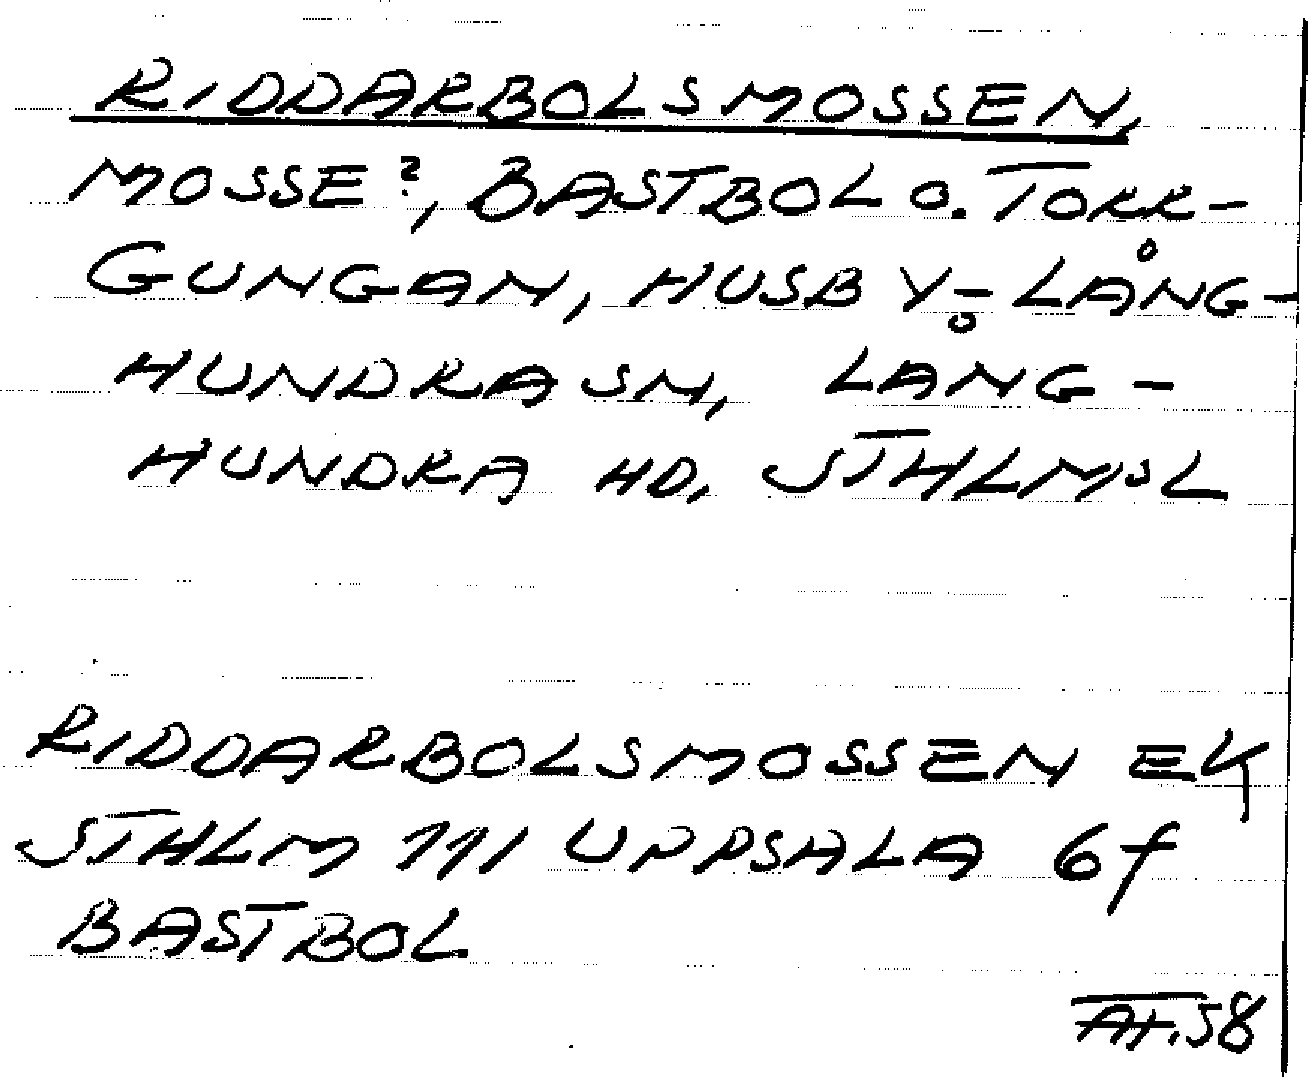 RIDDARBOLSMOSSEN,
MOSSE?, BASTBOL O. TORR-
GUNGAN, HUSBY-LÅNG-
HUNDRA SN, LÅNG-
HUNDRA HD, STHLMSL
RIDDARBOLSMOSSEN EK
STHLM 111 UPPSALA 6f
BASTBOL